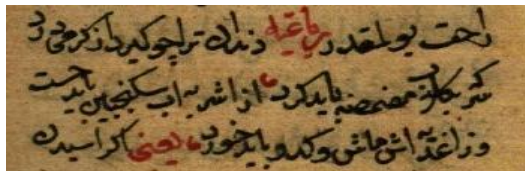 راحت بو لمقدر رباعیه دندان ترا چو کیرد از کرمی درد
باید کرد از اشربه اب سکنجبین باید جست
وز اغذیه اش ماش و کدو باید خورد یعنی اکر اسیدن